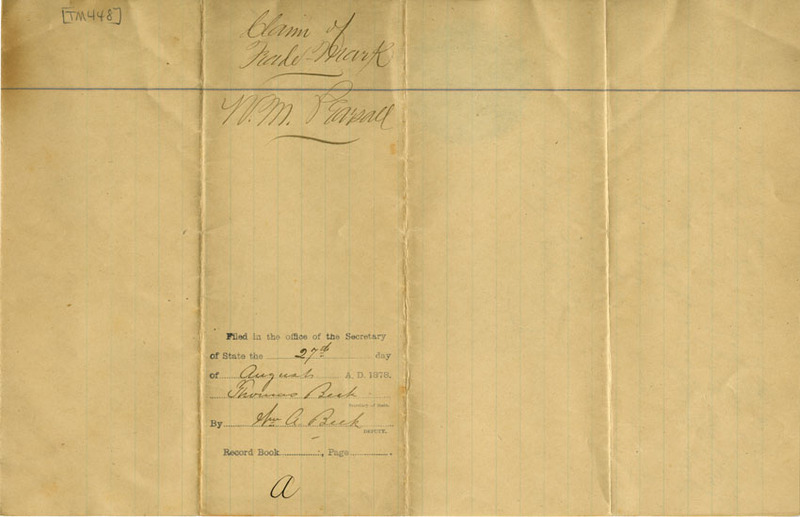 [TM448]
Claim of
Trade-Mark
W. M. Pearsall
Filed in the office of the Secretary
of State the 27th day
of August A. D. 1878.
Thomas Beck
Secretary of State.
By Wm A. Beck
DEPUTY.
Record Book..............., Page...............
A